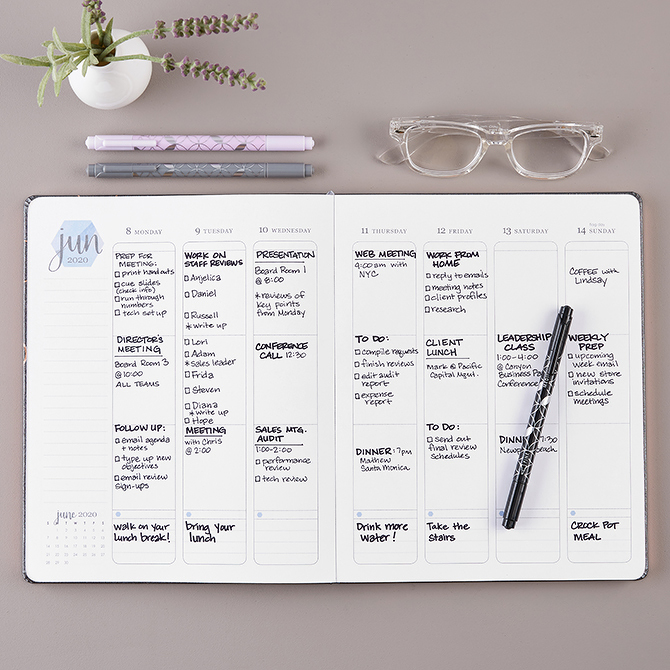 jun
2020
8 MONDAY
PREP FOR
MEETING:
print handouts
cue slides
(check info)
run through
numbers
tech setup
DIRECTOR'S
MEETING
Board Room 3
@ 10:00
ALL TEAMS
FOLLOW UP:
email agenda
+ notes
type up new
objectives
email review
sign-ups
Walk on your
lunch break!
9 TUESDAY
WORK ON
STAFF REVIEWS
Anjelica
Daniel
Russell
*write up
Lori
Adam
*Sales leader
Frida
Steven
Diana
*write up
Hope
MEETING
with Chris
@ 2:00
bring your
lunch
10 WEDNESDAY
PRESENTATION
Board Room 1
@ 8:00
*reviews of
key points
from Monday
CONFERENCE
CALL 12:30
SALES MTG.
AUDIT
1:00-2:00
performance
review
tech review
11 THURSDAY
WEB MEETING
9:00am with
NYC
TO DO:
compile requests
finish reviews
edit audit
report
expense
report
DINNER: 7pm
Mathew
Santa Monica
Drink more
water!
12 FRIDAY
WORK FROM
HOME
reply to emails
meeting notes
client profiles
research
CLIENT
LUNCH
Mark @ Pacific
Capital Mgmt.
TO DO:
send out
final review
schedules
Take the
Stairs
13 SATURDAY
LEADERSHIP
CLASS
1:00-4:00
@ Canyon
Business
Conference
7:30
14 SUNDAY
COFFEE with
Lindsay
WEEKLY
PREP
upcoming
week email
new store
invitations
schedule
meetings
CROCK POT
MEAL
june 2020